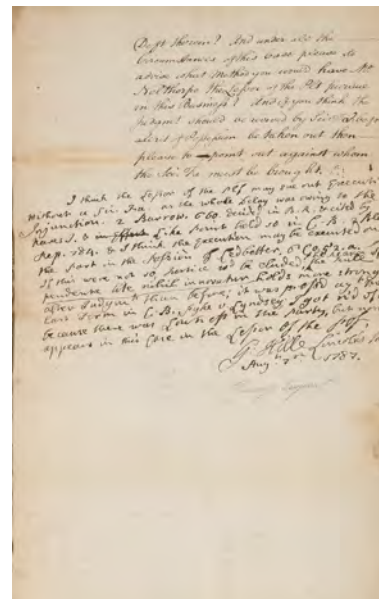 Deft thereon? And under all the
Circumstances of this Case please to
advise what Method you would have Mr
Nelthorpe the Lessor of the Plt pursue
in this Business? And if you think the
Judgmt should be revived by Scire Facias
a Writ of Possession be taken out then
please to point out against whom
the Sci: Fa: must be brought.
I think the Lessor of the Plf may sue out Executi
without a Sci. Fa. as the whole Delay was owing to the
Injunction. 2 Burrow. 660. decided in B. R. & cited by
Like point held so in C. B. 2 Bla
Rep. 784. & I think the Execution may be executed on
the Part in the possession of Ledbetter, 6 Co:
If this were not so, Justice wd be eluded, the Rule
pendente lite nihil innovetur holds more strong
after Judgmt than before; it was
last Term in C. B. Fyshe & Lyndsey I got rid of
because there was in the Party, but now
appears in this Case in the Lessor of the Plf,
G. Hill Lincolns
Augt 7th 1787.